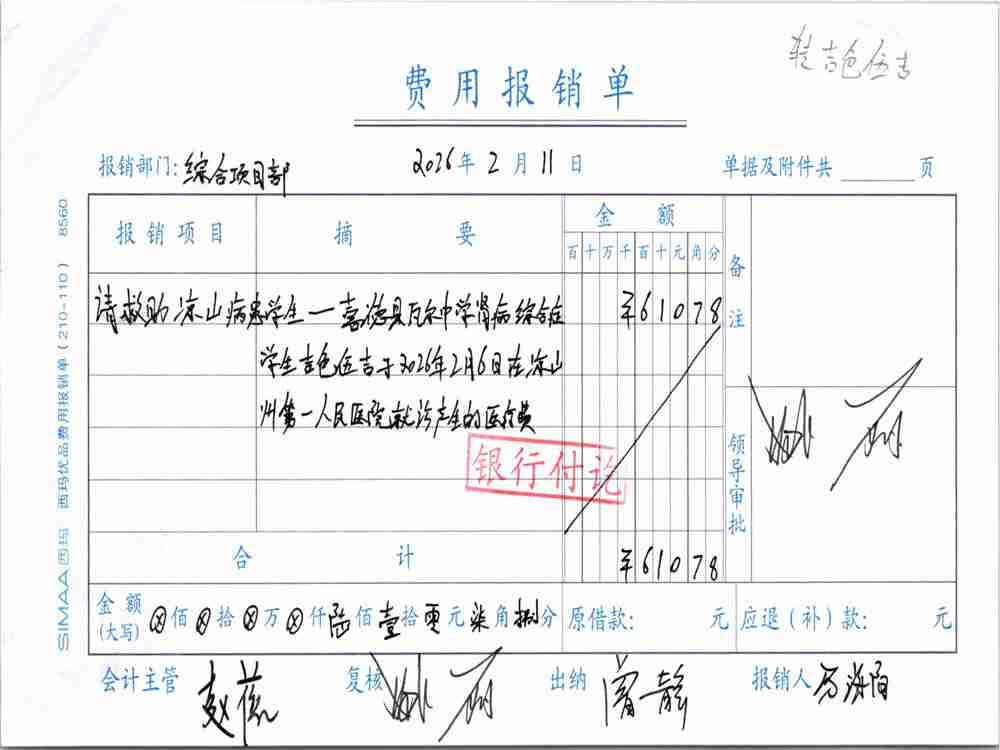 转吉色伍吉
费用报销单
报销部门:综合项目部 2026年2月11日 单据及附件共 页
报销项目 摘要 金额 备注
百十万千百十元角分
请救助凉山病患学生一喜德县瓦尔中学肾病综合症 ¥61078
学生吉色伍吉于2026年2月6日在凉山
州第一人民医院就诊产生的医疗费
银行付讫
领导审批
合计 ¥61078
金额(大写) ⊗佰⊗拾⊗万⊗仟陆佰壹拾零元柒角捌分 原借款: 元 应退(补)款: 元
会计主管 复核 出纳 报销人
SIMAA西玛 西玛优品费用报销单(210-110) 8560